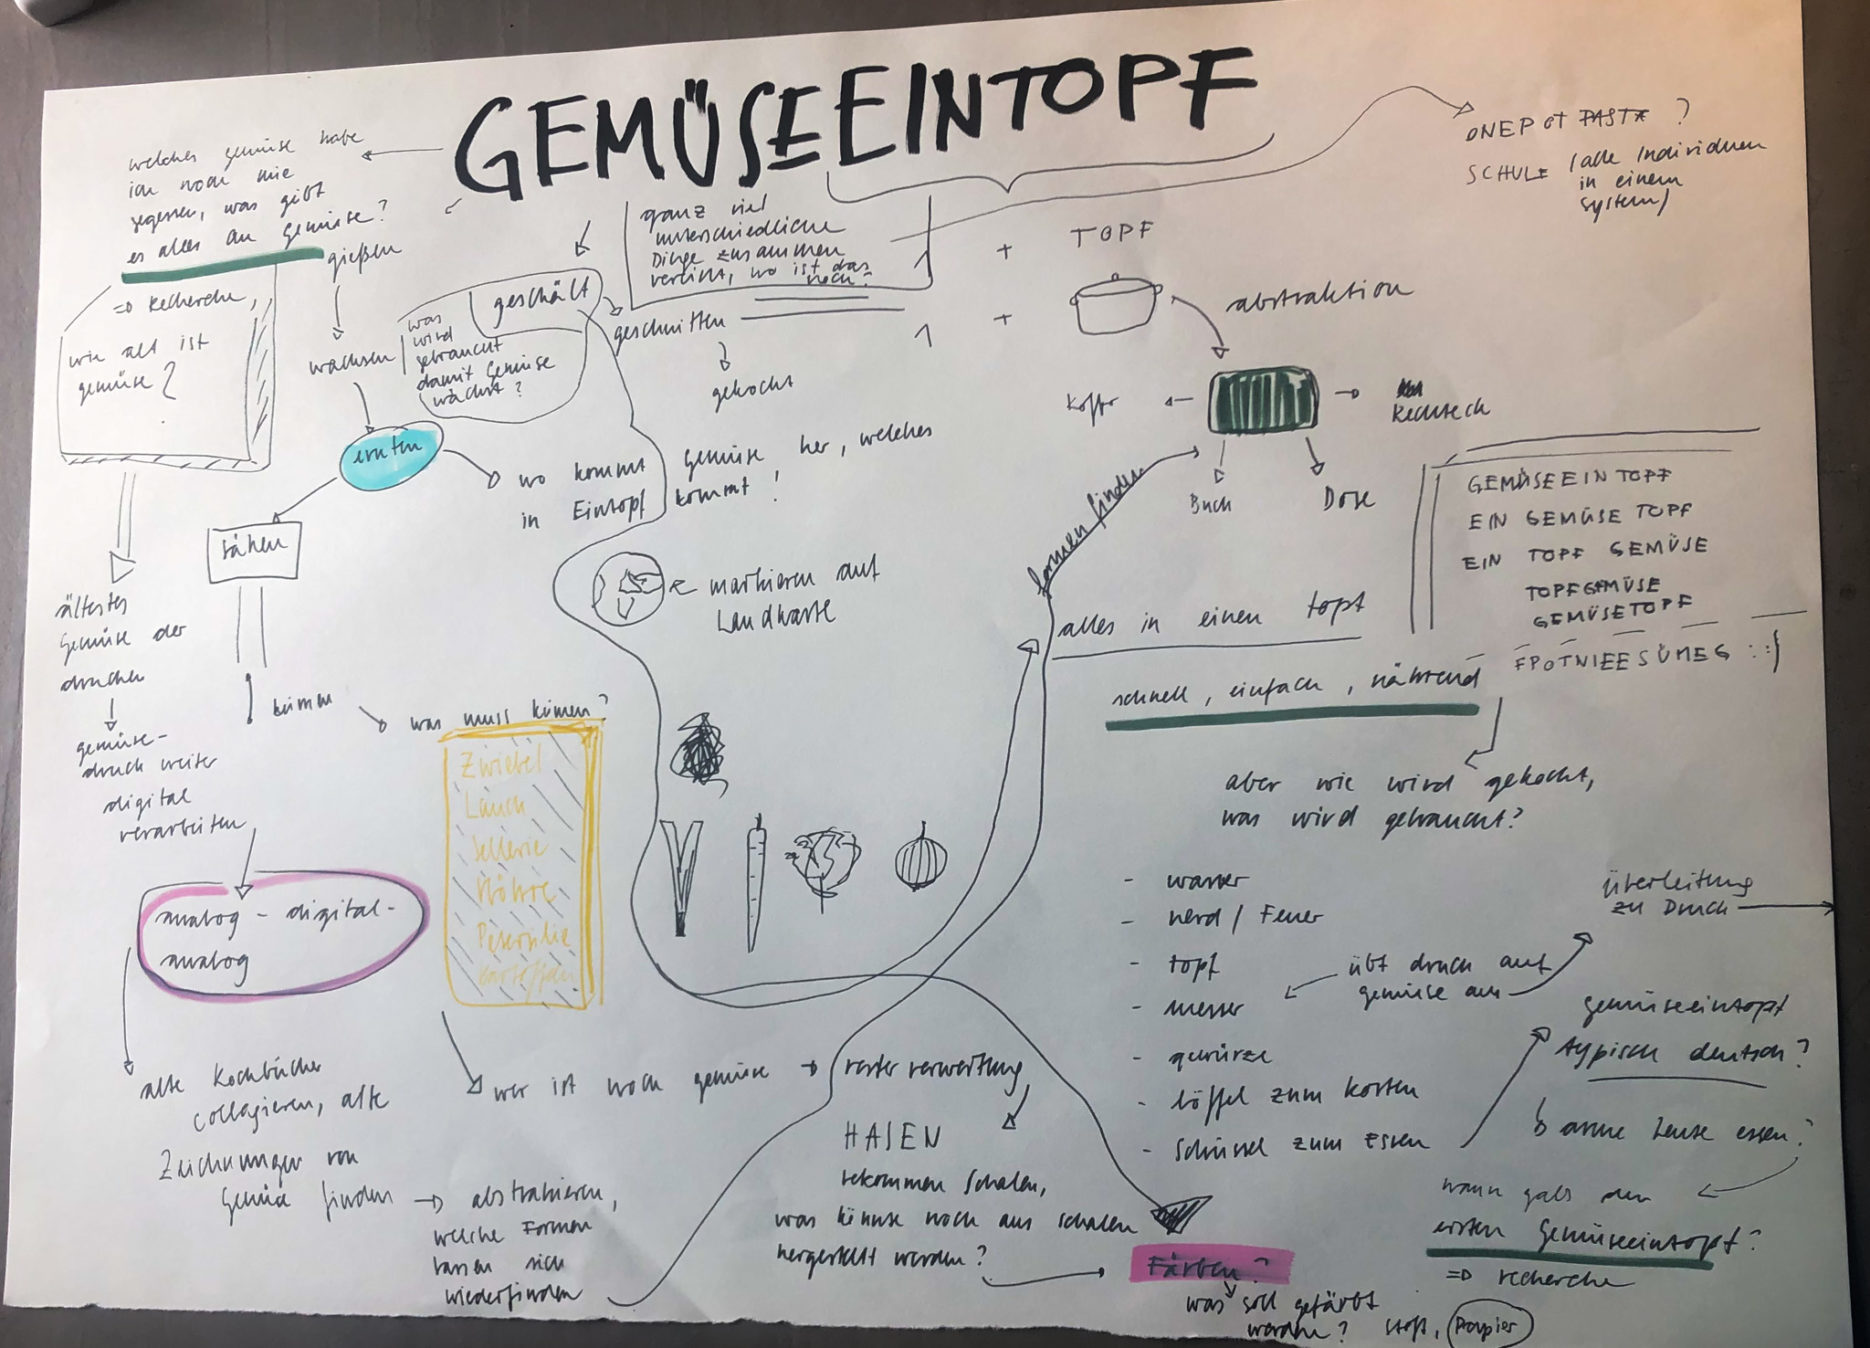 GEMÜSEEINTOPF
welches gemüse habe
ich noch nie
gegessen, was gibt
es alles an gemüse?
=> Recherche,
wie alt ist
gemüse?
ältestes
Gemüse der
drucken
gemüse-
druck weiter
digital
verarbeiten
analog - digital -
analog
alte Kochbücher
collagieren, alte
Zeichnungen von
Gemüse finden
abstrahieren,
welche Formen
lassen sich
wiederfinden
gießen
wachsen
was
wird
gebraucht
damit Gemüse
wächst?
ernten
sähen
geschält
geschnitten
gekocht
ganz viel
unterschiedliche
Dinge zusammen
vereint, wo ist das
noch?
wo kommt gemüse her, welches
in Eintopf kommt!
markieren auf
Landkarte
was muss
Zwiebel
Lauch
Sellerie
Möhre
Petersilie
Kartoffeln
wer ist noch gemüse
resteverwertung
HASEN
bekommen Schalen,
was könnte noch aus schalen
hergestellt werden?
Färben?
was soll gefärbt
werden? Stoff, Papier
ONEPOT PASTA ?
SCHULE (alle Individuen
in einem
system)
1 + TOPF
1 +
abstraktion
Koffer
Rechteck
Buch
Dose
formen finden
alles in einen topf
schnell, einfach, nährend
GEMÜSEEINTOPF
EIN GEMÜSE TOPF
EIN TOPF GEMÜSE
TOPFGEMÜSE
GEMÜSETOPF
FPOTNIEESÜMEG :)
aber wie wird gekocht,
was wird gebraucht?
- wasser
- herd / Feuer
- topf
- messer
- gewürze
- löffel zum kosten
- Schüssel zum Essen
übt druck auf
gemüse aus
überleitung
zu Druck
gemüseeintopf
typisch deutsch?
arme Leute essen?
wann gabs den
ersten Gemüseeintopf?
=> recherche